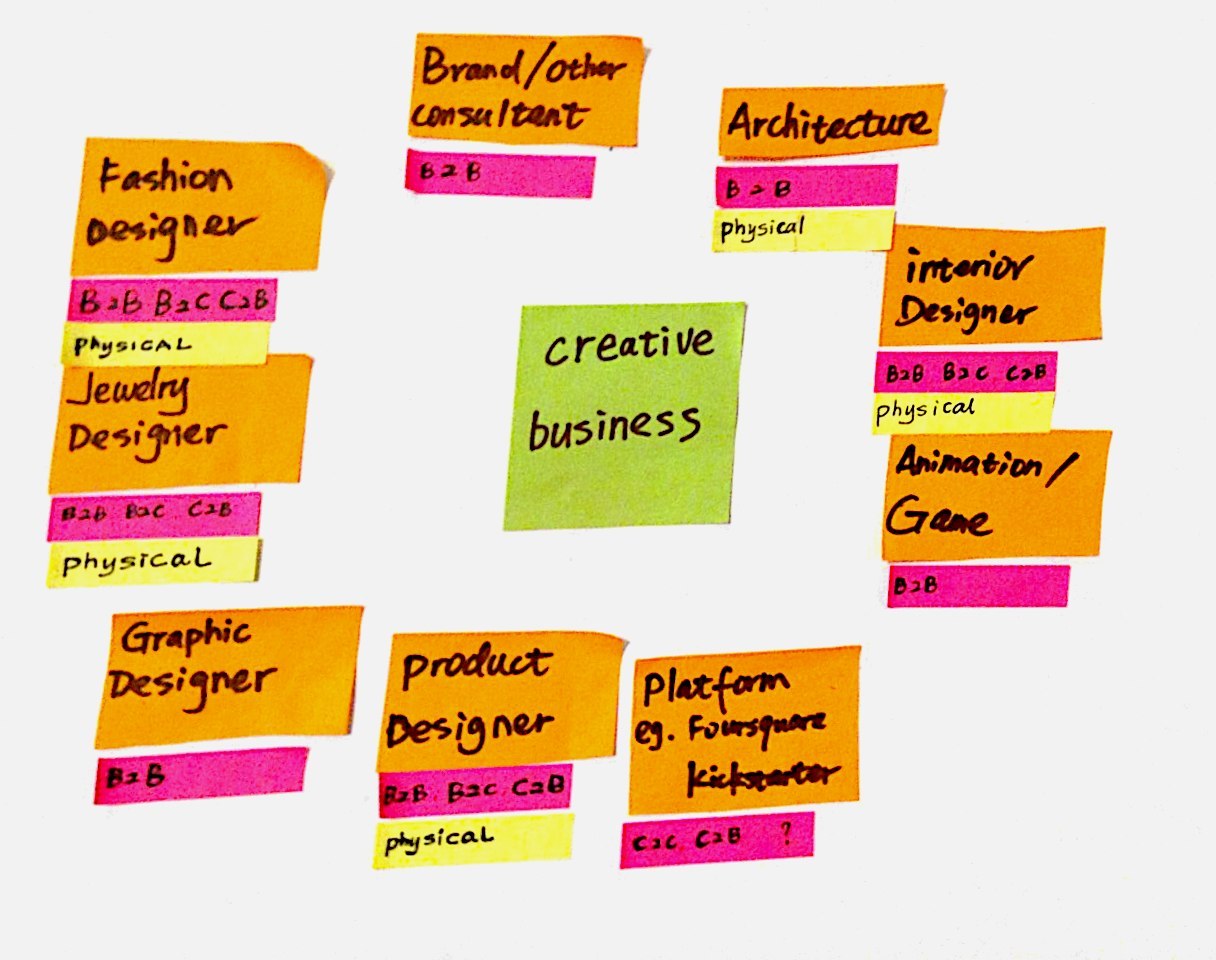 Brand/other
consultant
B2B
Architecture
B2B
physical
Fashion
Designer
B2B B2C C2B
PHYSICAL
interior
Designer
B2B B2C C2B
physical
creative
business
Jewelry
Designer
B2B B2C C2B
physical
Animation/
Game
B2B
Graphic
Designer
B2B
product
Designer
B2B B2C C2B
physical
Platform
eg. Foursquare
kickstarter
C2C C2B ?